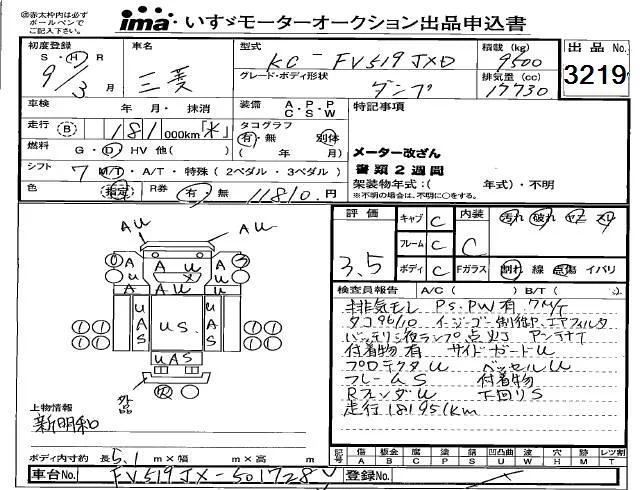 ※赤太枠内は必ず
ボールペンで
ご記入下さい。
ima・いすゞモーターオークション出品申込書
初度登録 S・H・R 9/3月
車名 三菱
型式 KC-FV519JXD
積載(kg) 9500
グレード・ボディ形状 ダンプ
排気量(cc) 17730
出品No. 3219
車検 年・月・抹消
装備 A・P・P C・S・W
特記事項
走行 B 181 000km *
タコグラフ 有・無 別体
( 年 月)
メーター改ざん
書類2週間
架装物年式:( 年式)・不明
※不明の場合は、不明に○をする。
燃料 G・D・HV 他( )
シフト 7 M/T・A/T・特殊(2ペダル・3ペダル)
色 指定 R券 有 無 11810円
評価 3.5
キャブ C
フレーム C
ボディ C
内装 C
汚れ 破れ ヤニ スリ
Fガラス 割れ 線 点傷 イバリ
検査員報告 A/C( ) B/T( )
排気モレ PS.PW有 7M/T
タコ96/10
バッテリ
付着物有 サイドガードU
プロテクタU ベッセルU
フレームS 付着物
RフェンダU 下回りS
走行181951km
AU AU
A U
A U A
UAS U.S. UAS
UAS
外品
上物情報
新明和
ボディ内寸約 長5.1m×幅 m×高 m
記号 傷 板金 腐 塗 錆 凹凸曲 波 穴 跡 レツ割
A B C P S U W H M T
車台No. FV519JX-501728
登録No.